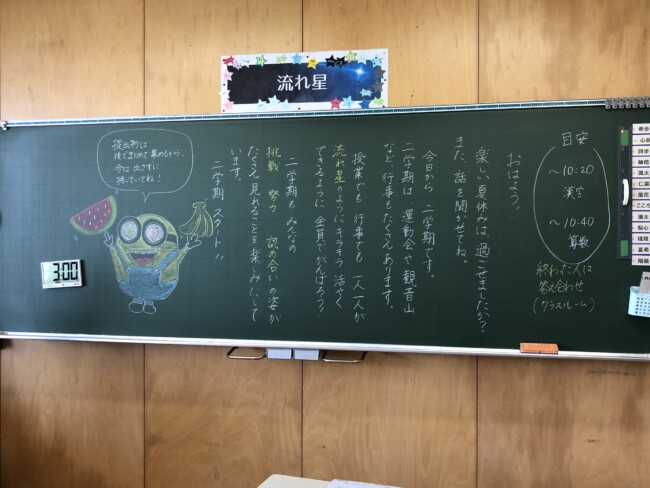 流れ星
目安
～10:20
漢字
～10:40
算数
終わった人は
答え合わせ
(クラスルーム)
おはよう！
楽しい夏休みは過ごせましたか？
また、話を聞かせてね。
今日から二学期です。
二学期は、運動会や観音山
など、行事もたくさんあります。
授業でも行事でも一人一人が
流れ星のようにキラキラ活やく
できるように全員でがんばろう！
二学期もみんなの
挑戦 努力 認め合いの姿が
たくさん見れることを楽しみにして
います。
二学期スタート!!
提出物は
後でまとめて集めるから、
今は出さずに
持っていてね！
3:00